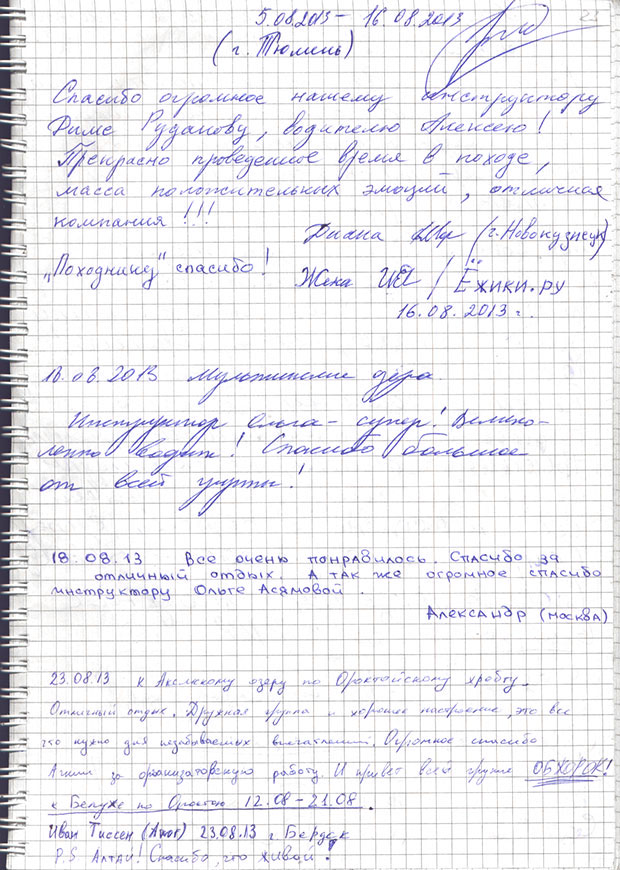 5.08.2013 – 16.08.2013 23
(г. Тюмень)
Спасибо огромное нашему инструктору
водителю Алексею!
Прекрасно проведенное время в походе,
масса положительных эмоций, отличная
компания!!!
Диана (г. Новокузнецк)
"Походникъ" спасибо!
Жека / Ёжики.ру
16.08.2013 г.
18.08.2013 Мультинские озера.
Инструктор Ольга – супер! Велико-
лепно водит! Спасибо большое
от всей группы!
18.08.13 Все очень понравилось. Спасибо за
отличный отдых. А так же огромное спасибо
инструктору Ольге Асямовой.
Александр (Москва)
23.08.13 к озеру по хребту.
Отличный отдых. Дружная группа и хорошее настроение, это все
что нужно для незабываемых впечатлений. Огромное спасибо
за организаторскую работу. И привет всей группе ОБЖОРОК!
к Белухе по 12.08 – 21.08.
Иван Тиссен 23.08.13 г. Бердск
P.S Алтай! Спасибо, что живой.